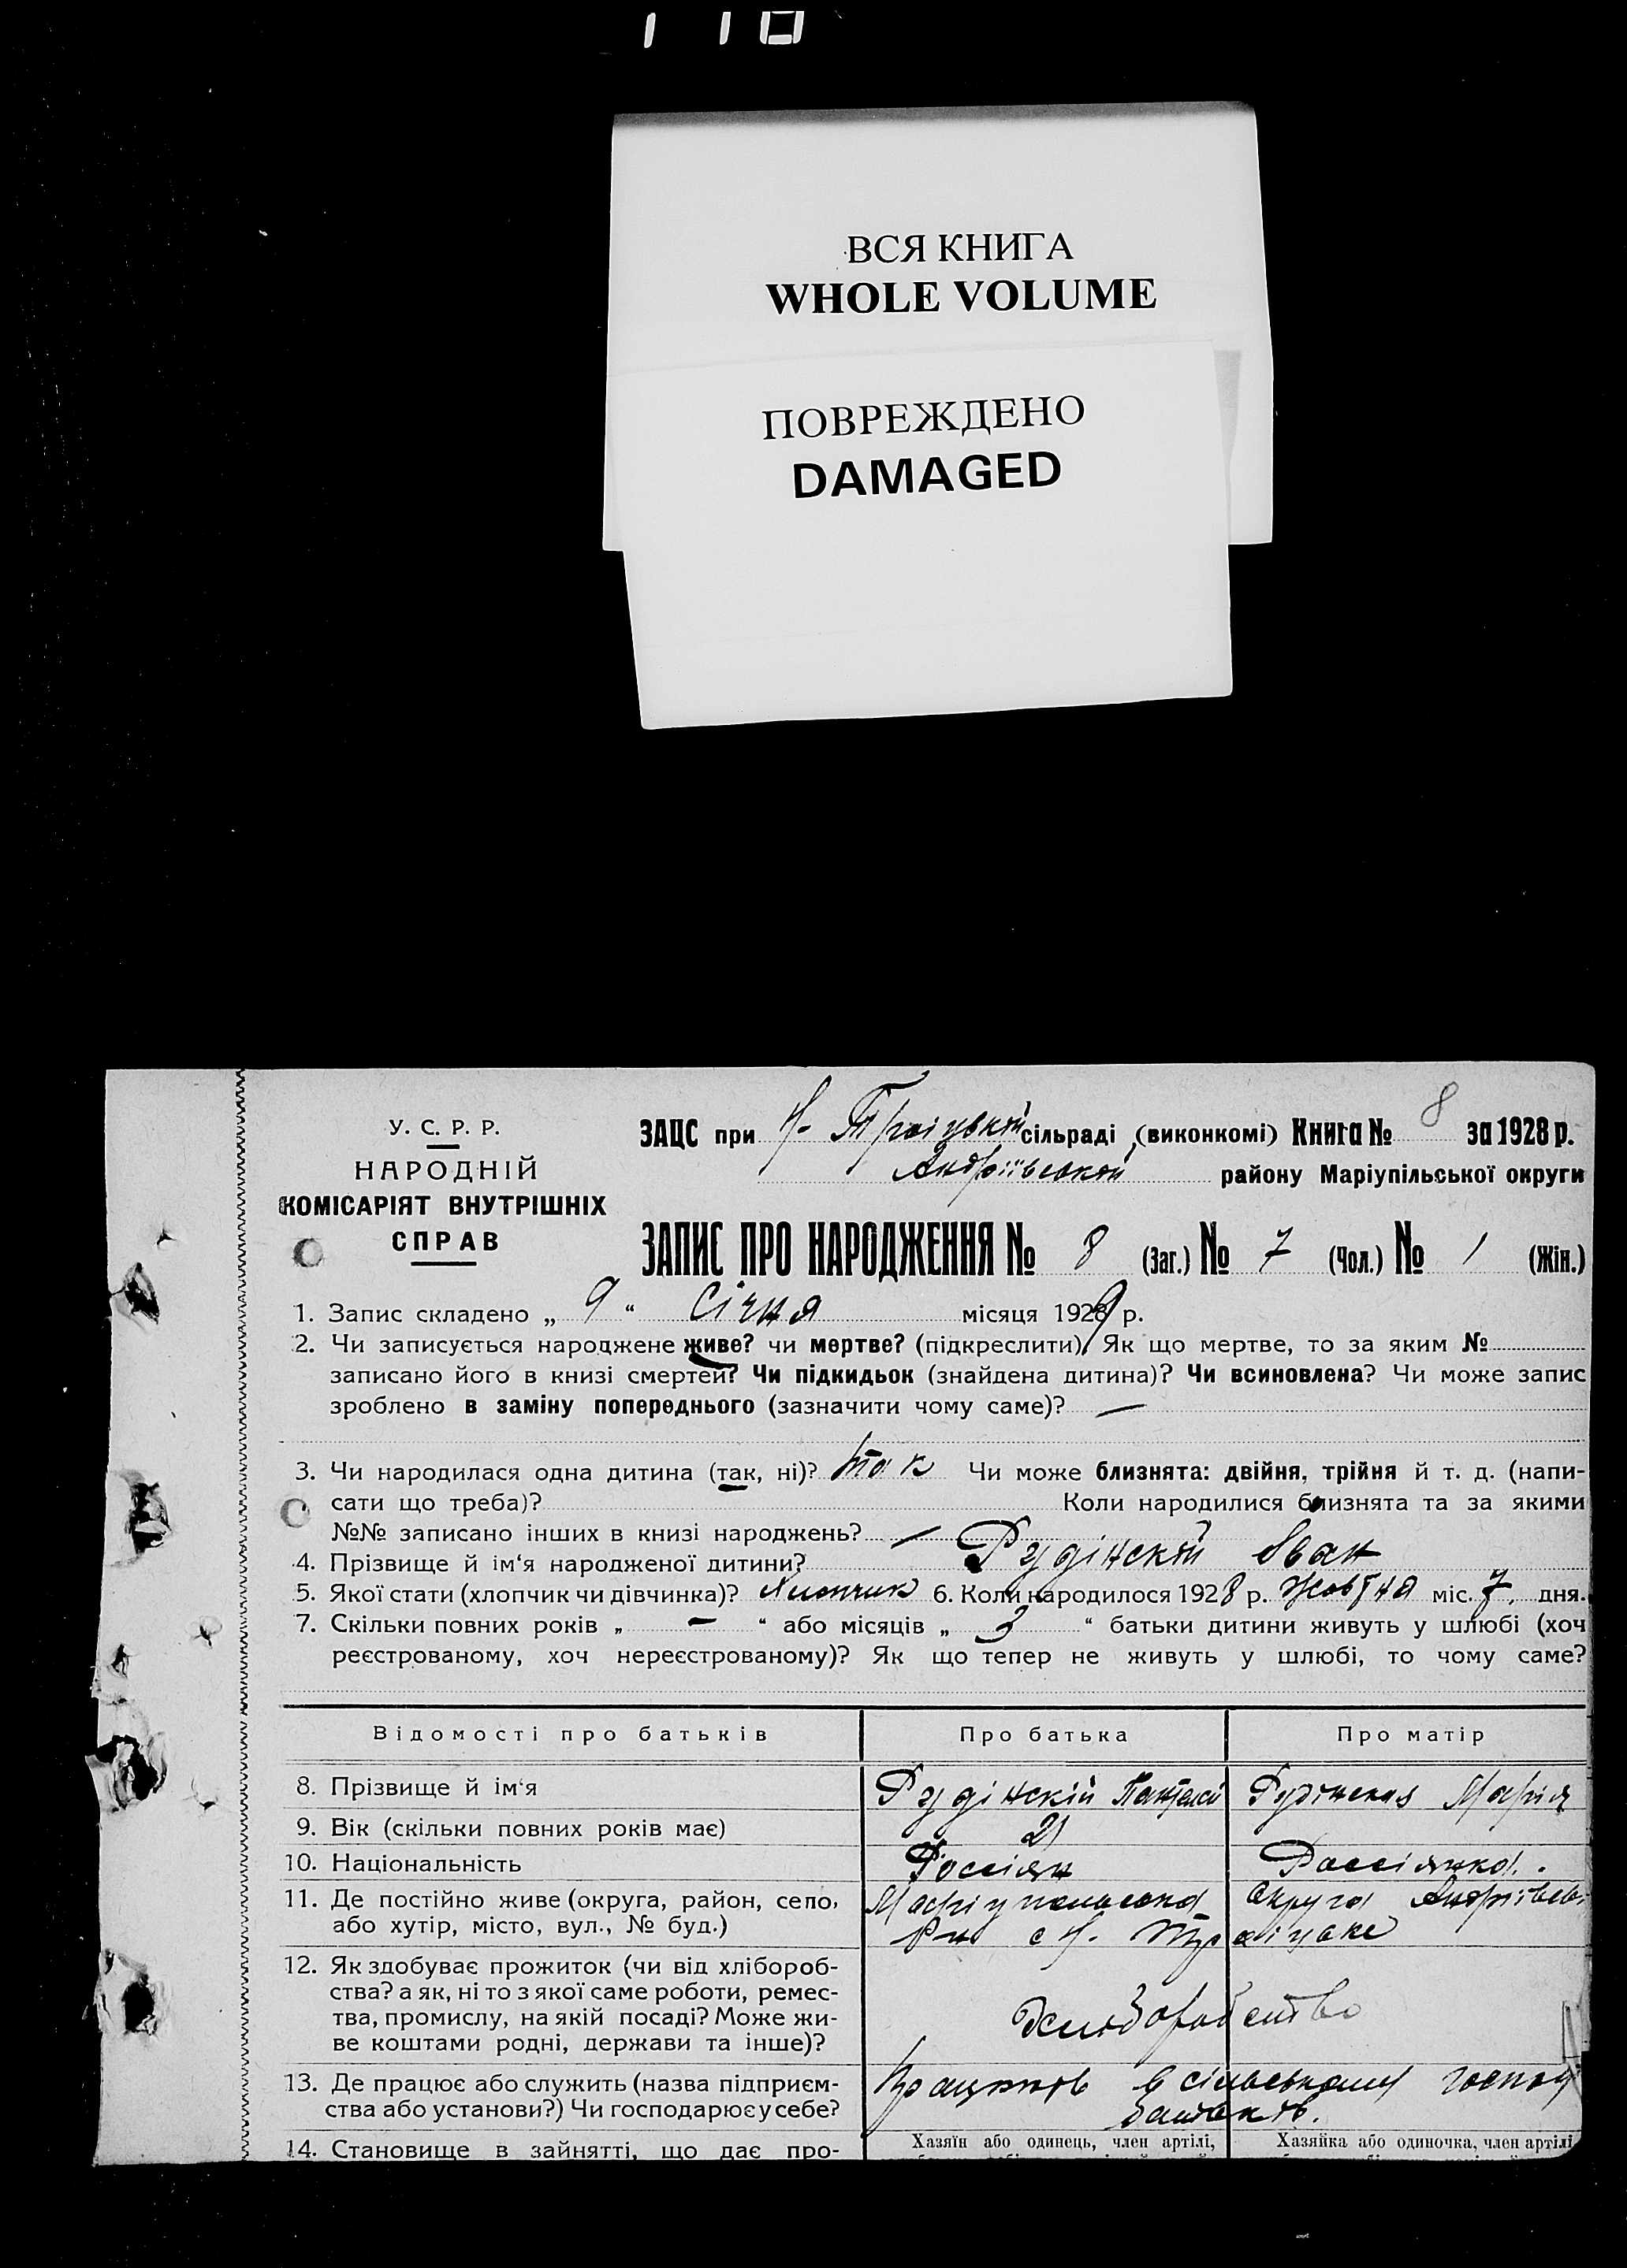 ВСЯ КНИГА
WHOLE VOLUME
ПОВРЕЖДЕНО
DAMAGED
У. С. Р. Р.
НАРОДНІЙ
КОМІСАРІЯТ ВНУТРІШНІХ
СПРАВ
ЗАЦС при Н-Троіцькій сільраді (виконкомі) Книга № 8 за 1928 р.
Андріївській району Маріупільської округи
ЗАПИС ПРО НАРОДЖЕННЯ № 8 (Заг.) № 7 (Чол.) № 1 (Жін.)
1. Запис складено „ 9 “ Січня місяця 1929 р.
2. Чи записується народжене живе? чи мертве? (підкреслити). Як що мертве, то за яким №
записано його в книзі смертей? Чи підкидьок (знайдена дитина)? Чи всиновлена? Чи може запис
зроблено в заміну попереднього (зазначити чому саме)? —
3. Чи народилася одна дитина (так, ні)? так Чи може близнята: двійня, трійня й т. д. (напи-
сати що треба)? Коли народилися близнята та за якими
№№ записано інших в книзі народжень? —
4. Прізвище й ім‘я народженої дитини? Рудінскій Іван
5. Якої стати (хлопчик чи дівчинка)? Хлопчик 6. Коли народилося 1928 р. Жовтня міс. 7, дня.
7. Скільки повних років „ — “ або місяців „ 3 “ батьки дитини живуть у шлюбі (хоч
реєстрованому, хоч нереєстрованому)? Як що тепер не живуть у шлюбі, то чому саме?
Відомості про батьків Про батька Про матір
8. Прізвище й ім‘я Рудінскій Пантелей Рудінская Марія
9. Вік (скільки повних років має) 21
10. Національність Россіян Россіянка.
11. Де постійно живе (округа, район, село, Маріупольська Округа Андріївськ
або хутір, місто, вул., № буд.) Р-н с Н. Троіцьке
12. Як здобуває прожиток (чи від хлібороб-
ства? а як, ні то з якої саме роботи, ремес-
тва, промислу, на якій посаді? Може жи-
ве коштами родні, держави та інше)? Хліборобство
13. Де працює або служить (назва підприєм- Працюють в сільському господ
ства або установи?) Чи господарює у себе?
14. Становище в зайнятті, що дає про- Хазяїн або одинець, член артілі, Хазяйка або одиночка, член артілі